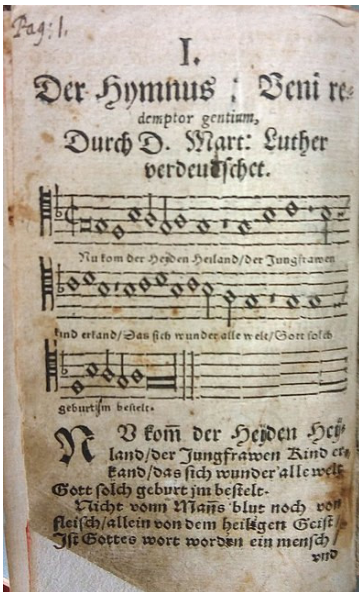 Pag: 1.
I.
Der Hymnus : Veni re-
demptor gentium,
Durch D. Mart: Luther
verdeutschet.
Nu kom der Heyden Heiland/der Jungfrawen
kind erkand/Das sich wunder alle welt/Gott solch
geburt jm bestelt.
NU kom̃ der Heyden Hey-
land/der Jungfrawen Kind er-
kand/das sich wunder alle welt
Gott solch geburt jm bestelt.
Nicht vonn Mañs blut noch von
fleisch/allein von dem heiligen Geist/
Ist Gottes wort worden ein mensch/
vnd